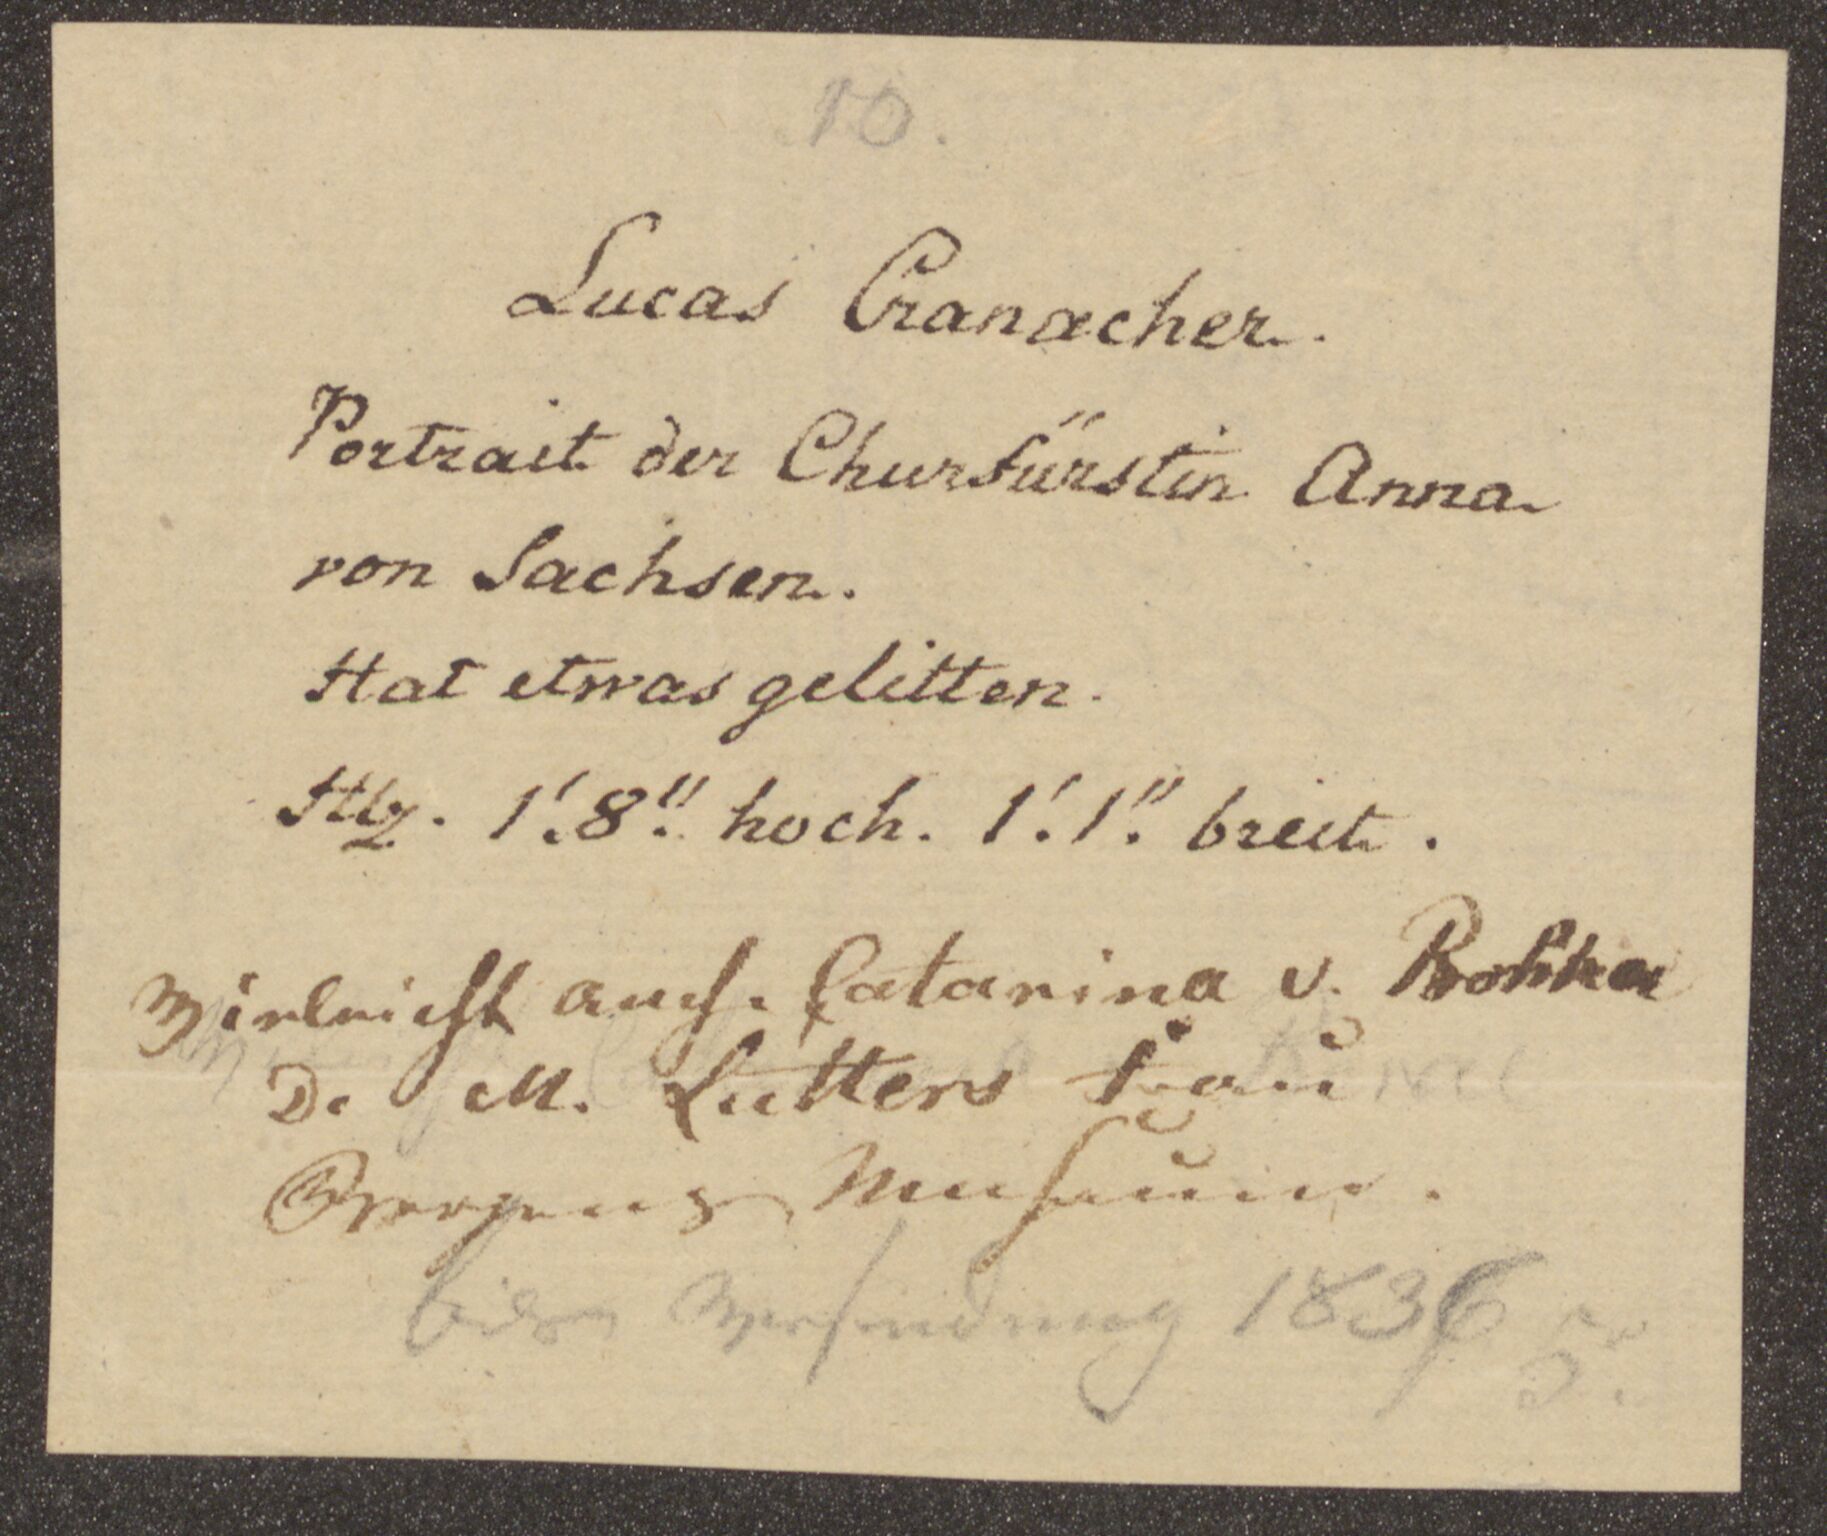 10.
Lucas Cranacher.
Portrait der Churfürstin Anna
von Sachsen.
Hat etwas gelitten.
Hlz. 1'.8''. hoch. 1'.1''. breit.
Vieleicht auch Catarina v.
D. M. Lutters Frau
Museum.
1836